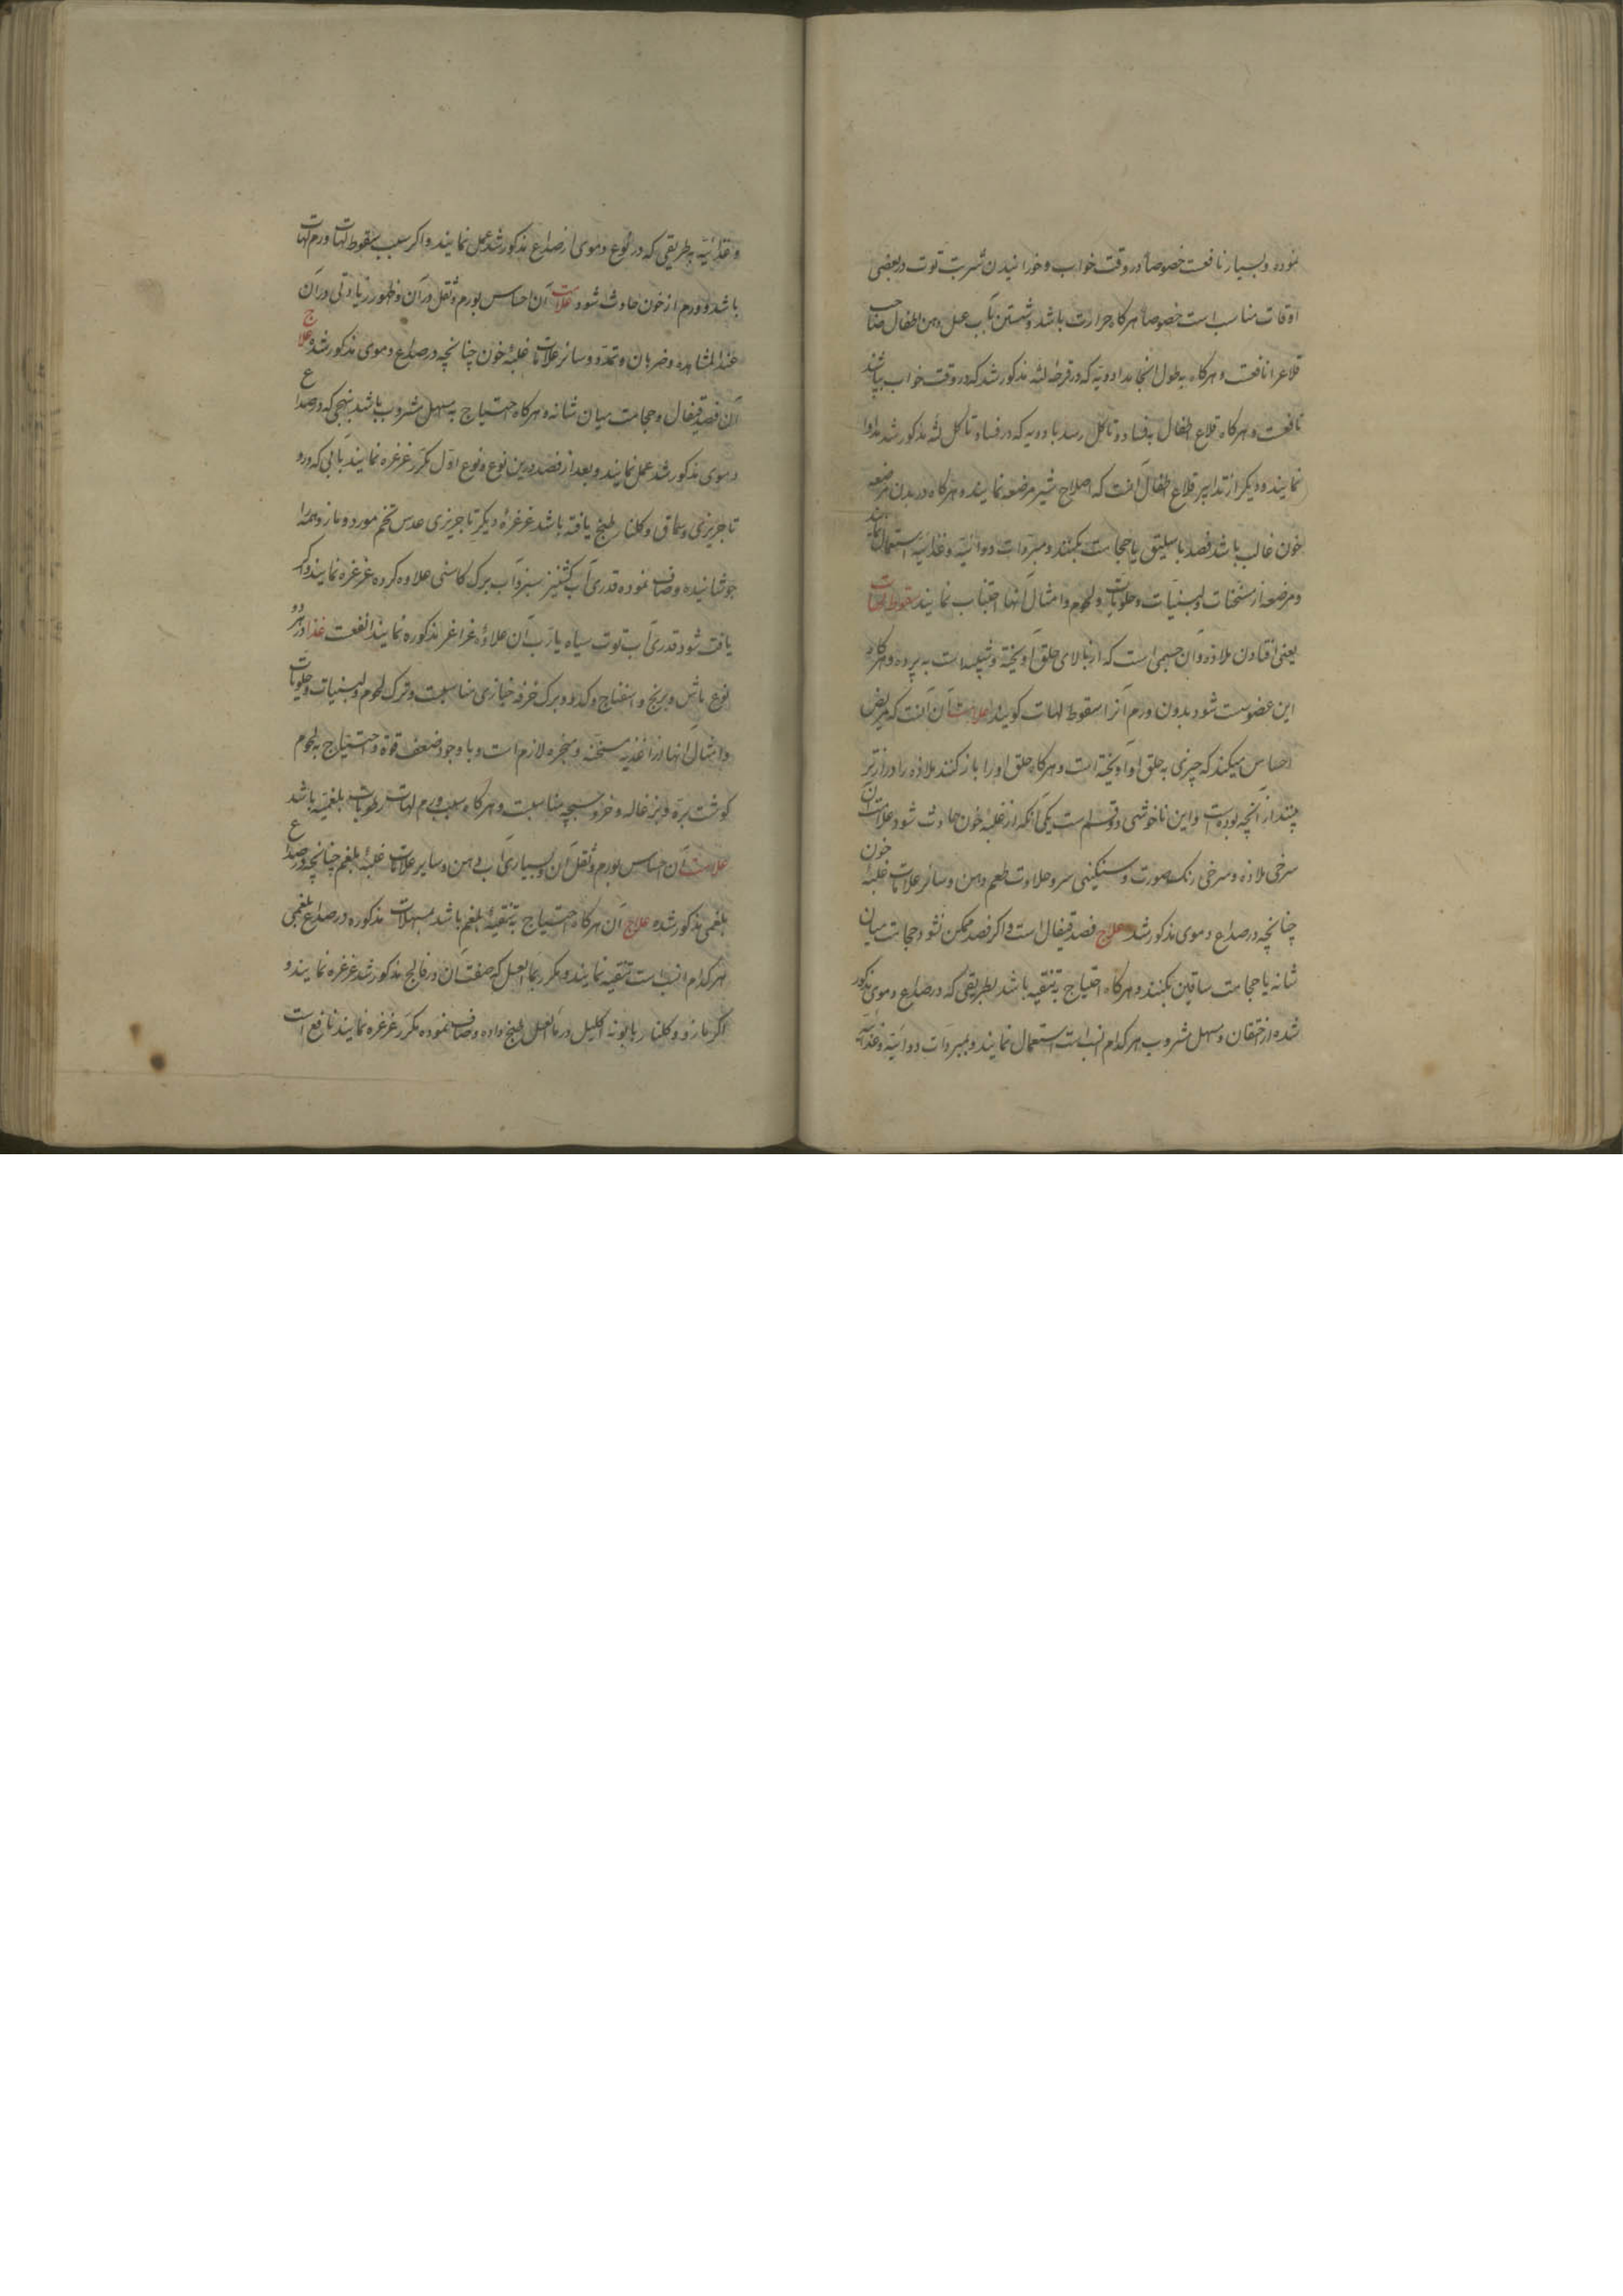 نموده و بسیار نافعست خصوصاً در وقت خواب و خورانیدن شربت توت در بعضی
اوقات مناسب است خصوصاً هرکاه حرارت باشد و شستن بآب عسل دهن اطفال صاحب
قلاع را نافعست و هرکاه بطول انجامد ادویهٔ که در قرحه لثه مذکور شد که در وقت خواب بپاشند
نافعست و هرکاه قلاع اطفال بفساد و تاکل رسد بادویه که در فساد و تاکل لثه مذکور شد مداوا
نمایند و دیکر از تدابیر قلاع اطفال آنست که اصلاح شیر مرضعه نمایند و هرکاه در بدن مرضعه
خون غالب باشد فصد باسلیق یا حجامت بکنند و مبردات دوائیه و غذائیه استعمال نمایند
و مرضعه از مسخنات و لبنیات و حلویات و لحوم و امثال آنها اجتناب نمایند سقوط لهات
یعنی افتادن ملاذه و آن جسمی است که از بالای حلق آویخته و شبیه است به پرده و هرکاه
این عضو سست شود بدون ورم آنرا سقوط لهات کویند علامت آن آنست که مریض
احساس میکند که چیزی به حلق او آویخته است و هرکاه حلق او را باز کنند ملاذه را درازتر
بیند از آنچه بوده است و این ناخوشی دو قسم است یکی آنکه از غلبهٔ خون حادث شود علامت آن
سرخی ملاذه و سرخی رنک صورت و سنکینی سر و حلاوت طعم دهن و سائر علامات غلبهٔ خون
چنانچه در صداع دموی مذکور شد علاج فصد قیفال است و اکر فصد ممکن نشود حجامت میان
شانه یا حجامت ساقین بکنند و هرکاه احتیاج به تنقیه باشد بطریقی که در صداع دموی مذکور
شده از احتقان و مسهل مشروب هر کدام انسب است استعمال نمایند و بمبردات دوائیه و غذائیه
و غذائیه به طریقی که در نوع دموی از صداع مذکور شد عمل نمایند و اکر سبب سقوط لهات ورم لهات
باشد و ورم از خون حادث شود علامت آن احساس بورم و ثقل در آن و ظهور زیادتی در آن
عند المشاهده و ضربان و تمدد و سائر علامات غلبهٔ خون چنانچه در صداع دموی مذکور شد علاج
آن فصد قیفال و حجامت میان شانه و هرکاه احتیاج به مسهل مشروب باشد بنهجی که در صداع
دموی مذکور شد عمل نمایند و بعد از فصد در این نوع و نوع اول مکرر غرغره نمایند بآبی که در و
تاجریزی و سماق و کلنار طبخ یافته باشد غرغرهٔ دیکر تاجریزی عدس تخم مورد و مازو همه را
جوشانیده و صاف نموده قدری آب کشنیز سبز و آب برک کاسنی علاوه کرده غرغره نمایند و اکر
یافت شود قدری آب توت سیاه یا رب آن علاوهٔ غراغر مذکوره نمایند انفعست غذا در هر دو
نوع ماش و برنج و اسفناج و کدو و برک خرفه خبازی مناسبست و ترک لحوم و لبنیات و حلویات
و امثال آنها از اغذیه مسخنه و مبخره لازم است و با وجود ضعف قوة و احتیاج به لحوم
کوشت بره و بزغاله و خروسبچه مناسبست و هرکاه سبب ورم لهات رطوبات بلغمیه باشد
علامت آن احساس بورم و ثقل آن و بسیاری آب دهن و سایر علامات غلبهٔ بلغم چنانچه در صداع
بلغمی مذکور شده علاج آن هرکاه احتیاج به تنقیهٔ بلغم باشد بمسهلات مذکوره در صداع بلغمی
هر کدام انسب است تنقیه نمایند و مکرر بماء العسل که صفت آن در فالج مذکور شد غرغره نمایند و
اکر مازو و کلنار بابونه اکلیل در ماء العسل طبخ داده و صاف نموده مکرر غرغره نمایند نافع است